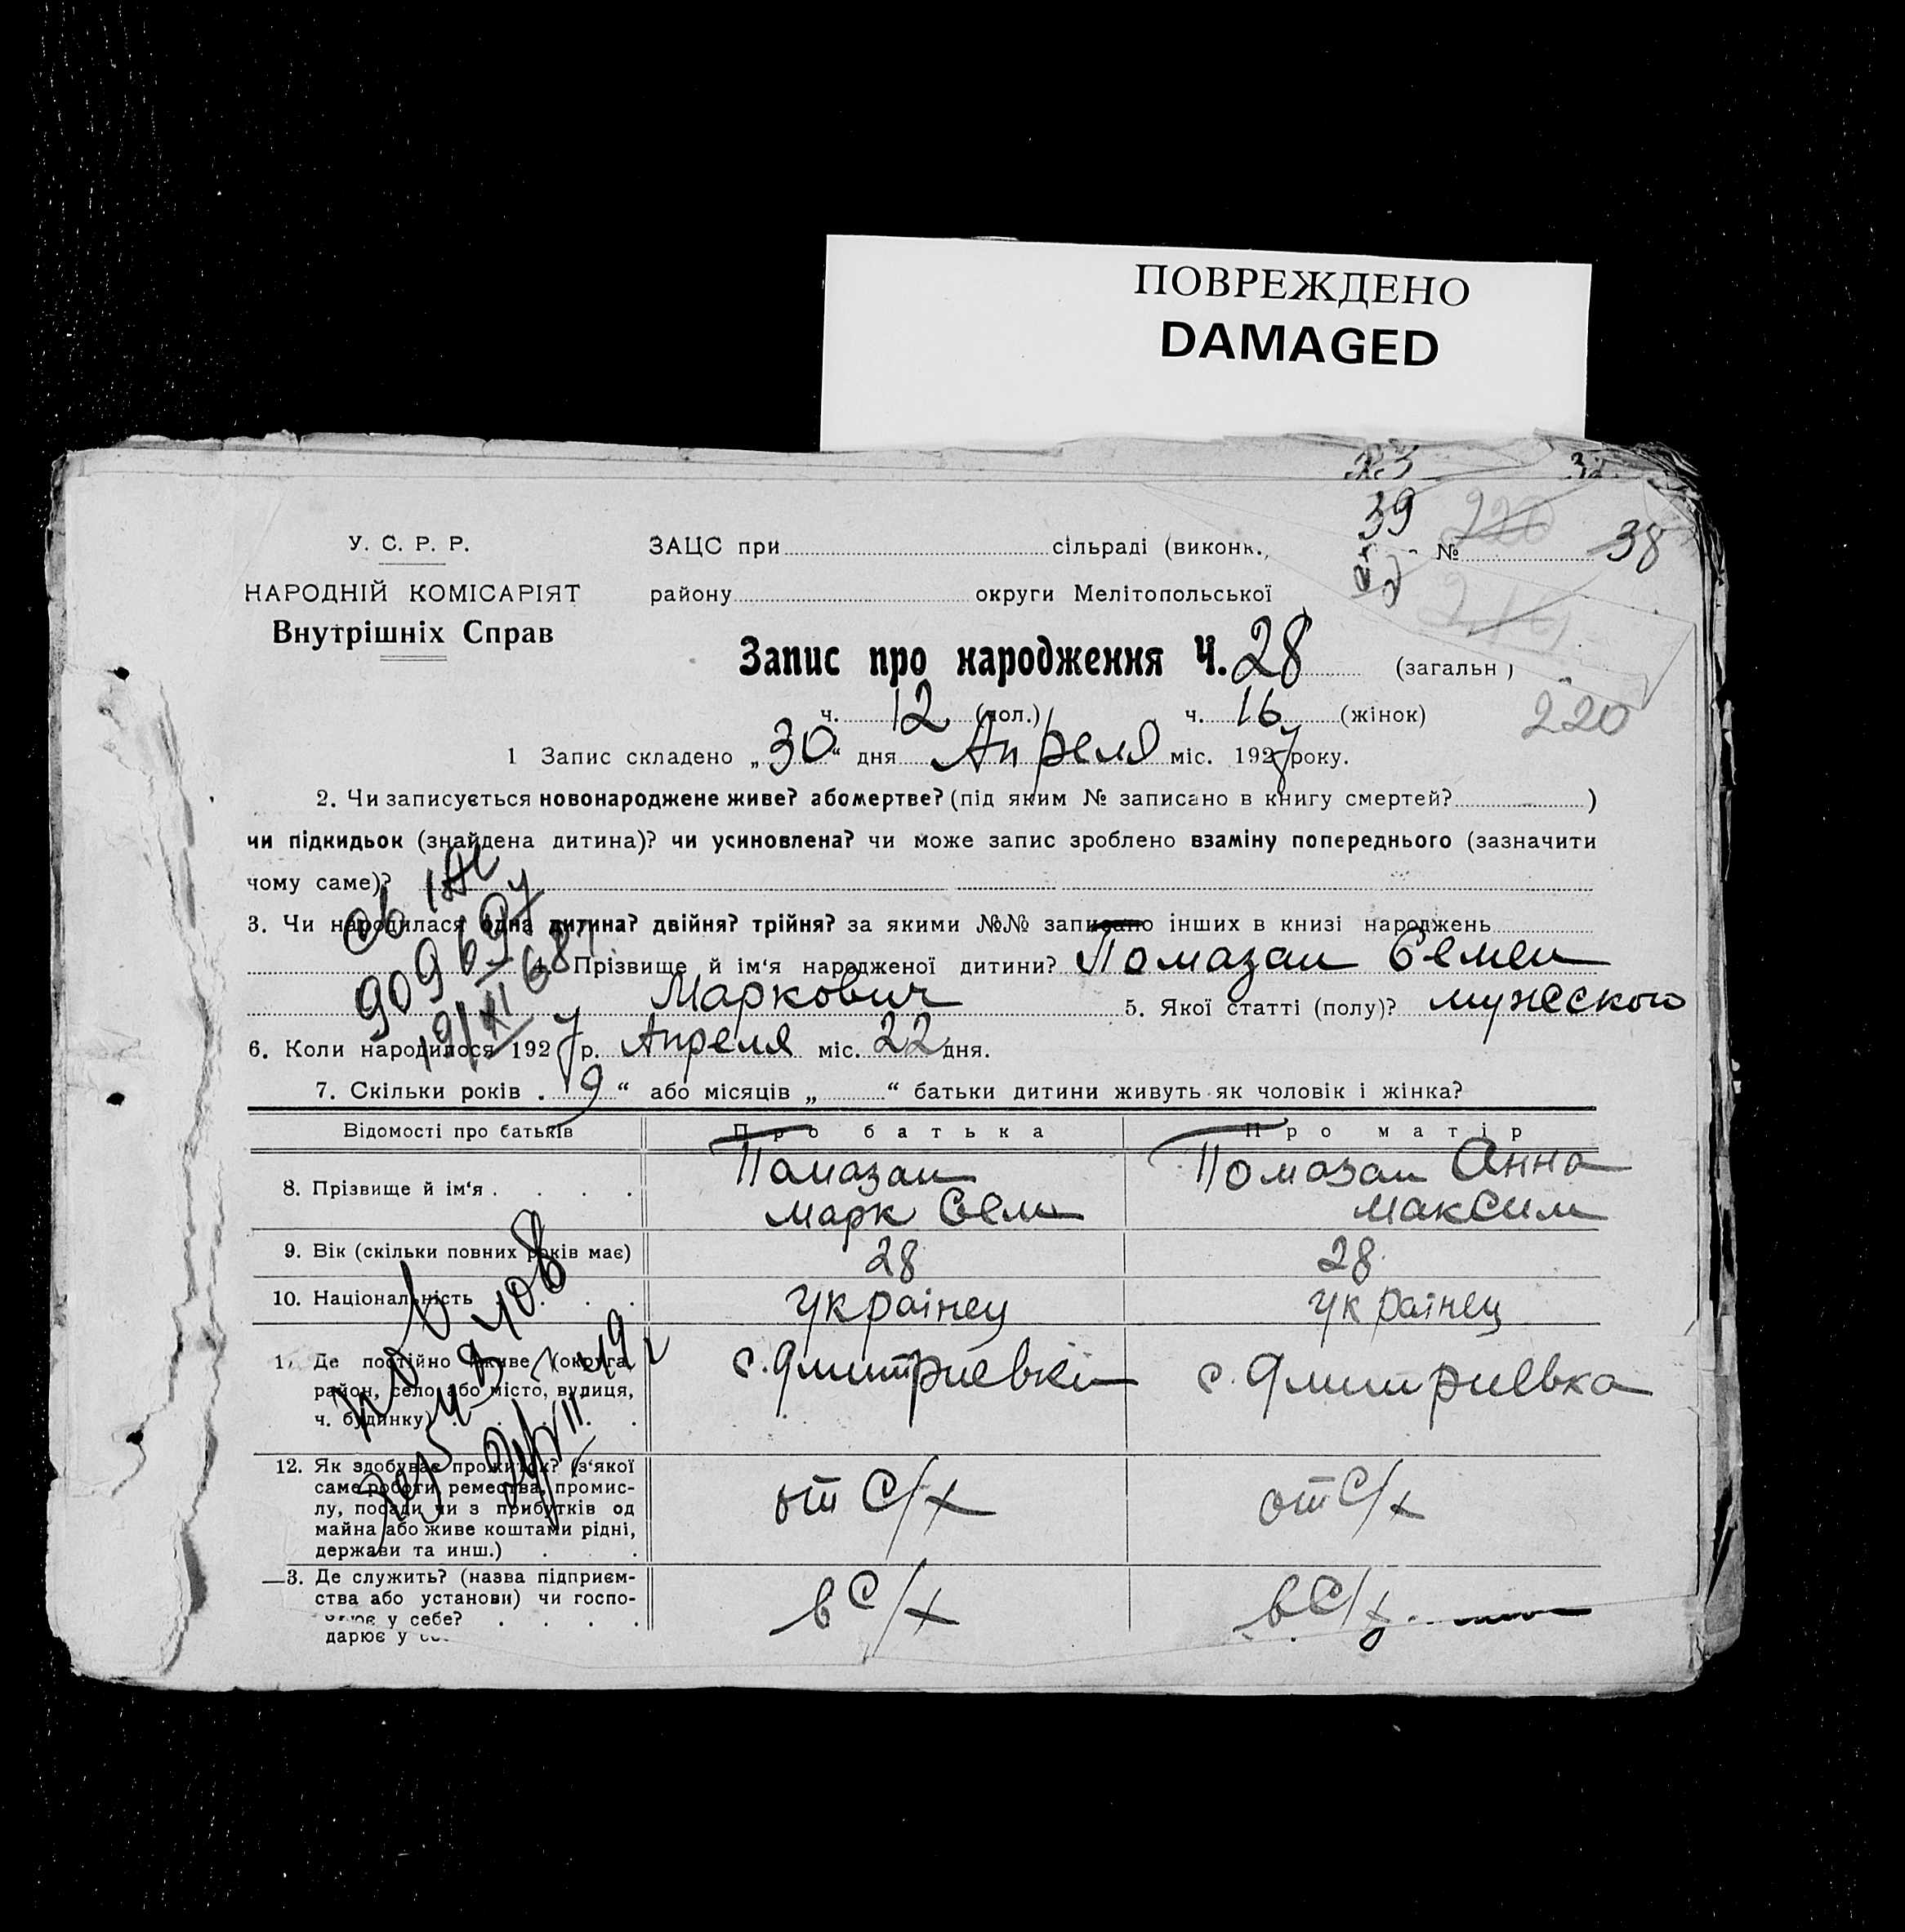 ПОВРЕЖДЕНО
DAMAGED
39
220
38
У. С. Р. Р.
НАРОДНІЙ КОМІСАРІЯТ
Внутрішніх Справ
ЗАЦС при сільраді (виконк., №
району округи Мелітопольської
Запис про народження Ч. 28 (загальн )
ч. 12 (пол.) ч. 16 (жінок)
220
1 Запис складено „30“ дня Апреля міс. 1927 року.
2. Чи записується новонароджене живе? або мертве? (під яким № записано в книгу смертей? )
чи підкидьок (знайдена дитина)? чи усиновлена? чи може запис зроблено взаміну попереднього (зазначити
чому саме)?
3. Чи народилася одна дитина? двійня? трійня? за якими №№ записано інших в книзі народжень
4. Прізвище й ім‘я народженої дитини? Помазан Семен
Маркович 5. Якої статті (полу)? мужеского
6. Коли народилося 1927 р. Апреля міс. 22 дня.
7. Скільки років „9“ або місяців „ “ батьки дитини живуть як чоловік і жінка?
Відомості про батьків Про батька Про матір
8. Прізвище й ім‘я . . . . Помазан Марк Сем Помазан Анна Максим
9. Вік (скільки повних років має) 28 28
10. Національність . . . українец українец
1. Де постійно живе (округа, район, село або місто, вулиця, ч. будинку) . . . . с. Дмитриевки с. Дмитриевка
12. Як здобуває прожиток? (з‘якої саме роботи, ремества, промислу, посади чи з прибутків од майна або живе коштами рідні, держави та инш.) . . . от с/х от с/х
3. Де служить? (назва підприємства або установи) чи господарює у себе? . . . . в с/х в с/х
дарює у